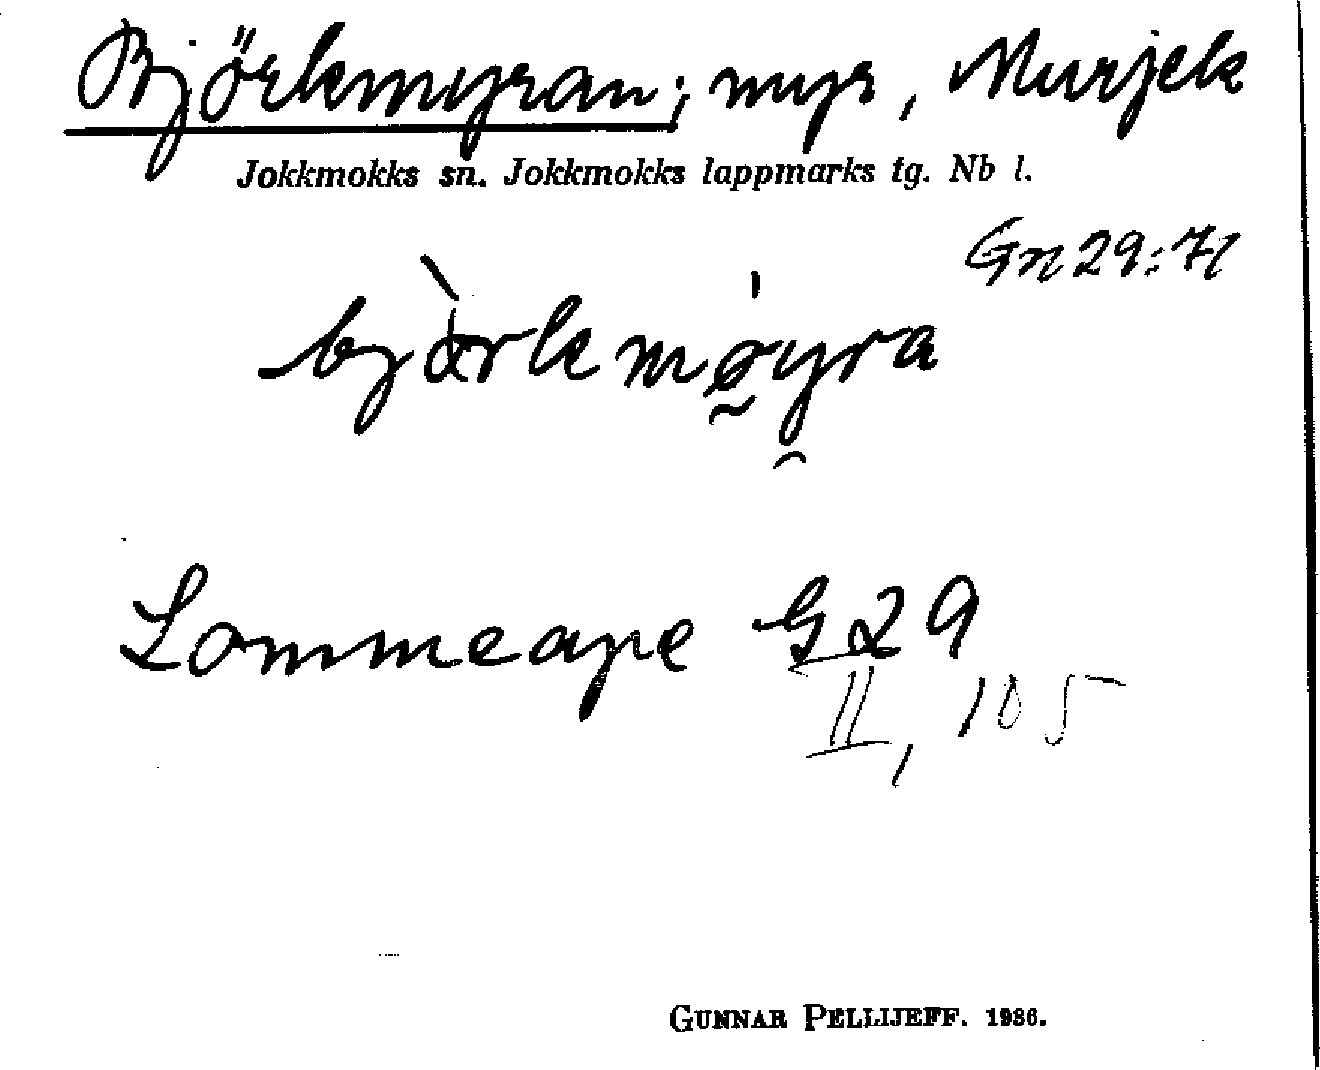 Björkmyran; myr, Murjek
Jokkmokks sn. Jokkmokks lappmarks tg. Nb l.
Gn 29:71
Lommeape G 29
II, 105
GUNNAR PELLIJEFF. 1936.